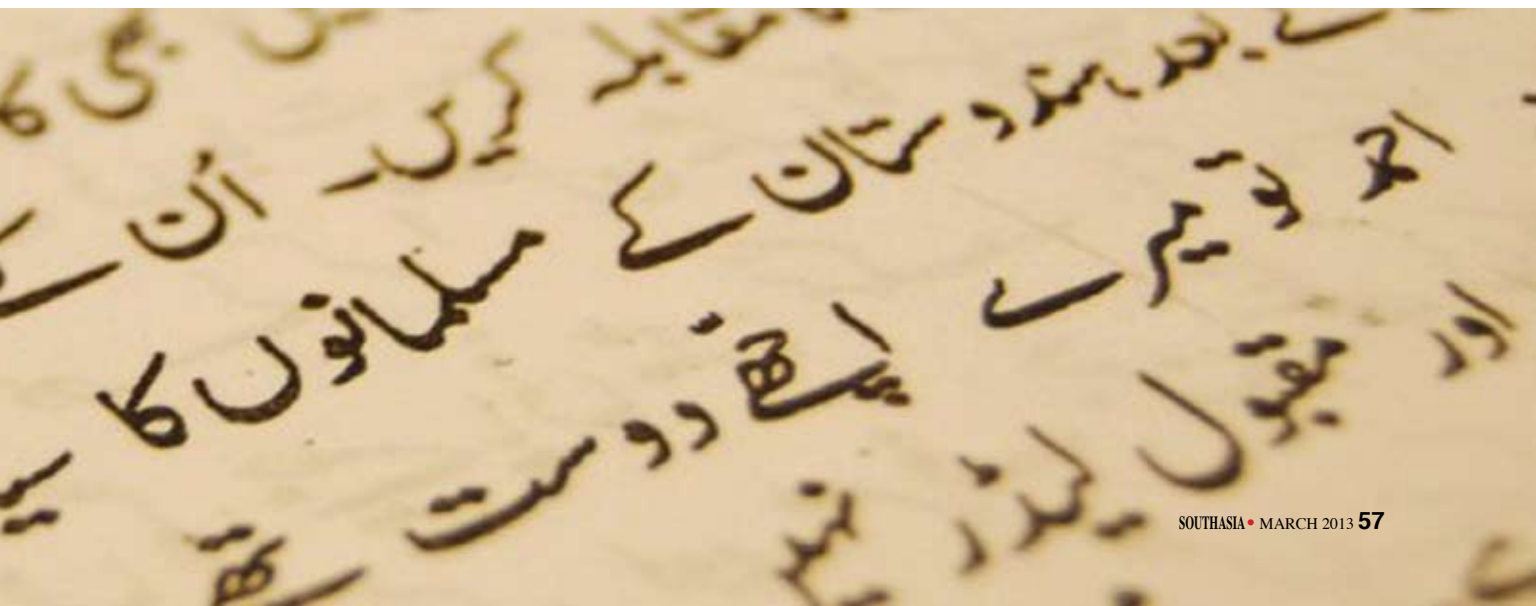 بھی کا
مقابلہ کریں۔ اُن کے
بعد ہندوستان کے مسلمانوں کا
تو میرے اچھے دوست تھے
اور مقبول لیڈر
SOUTHASIA • MARCH 2013 57